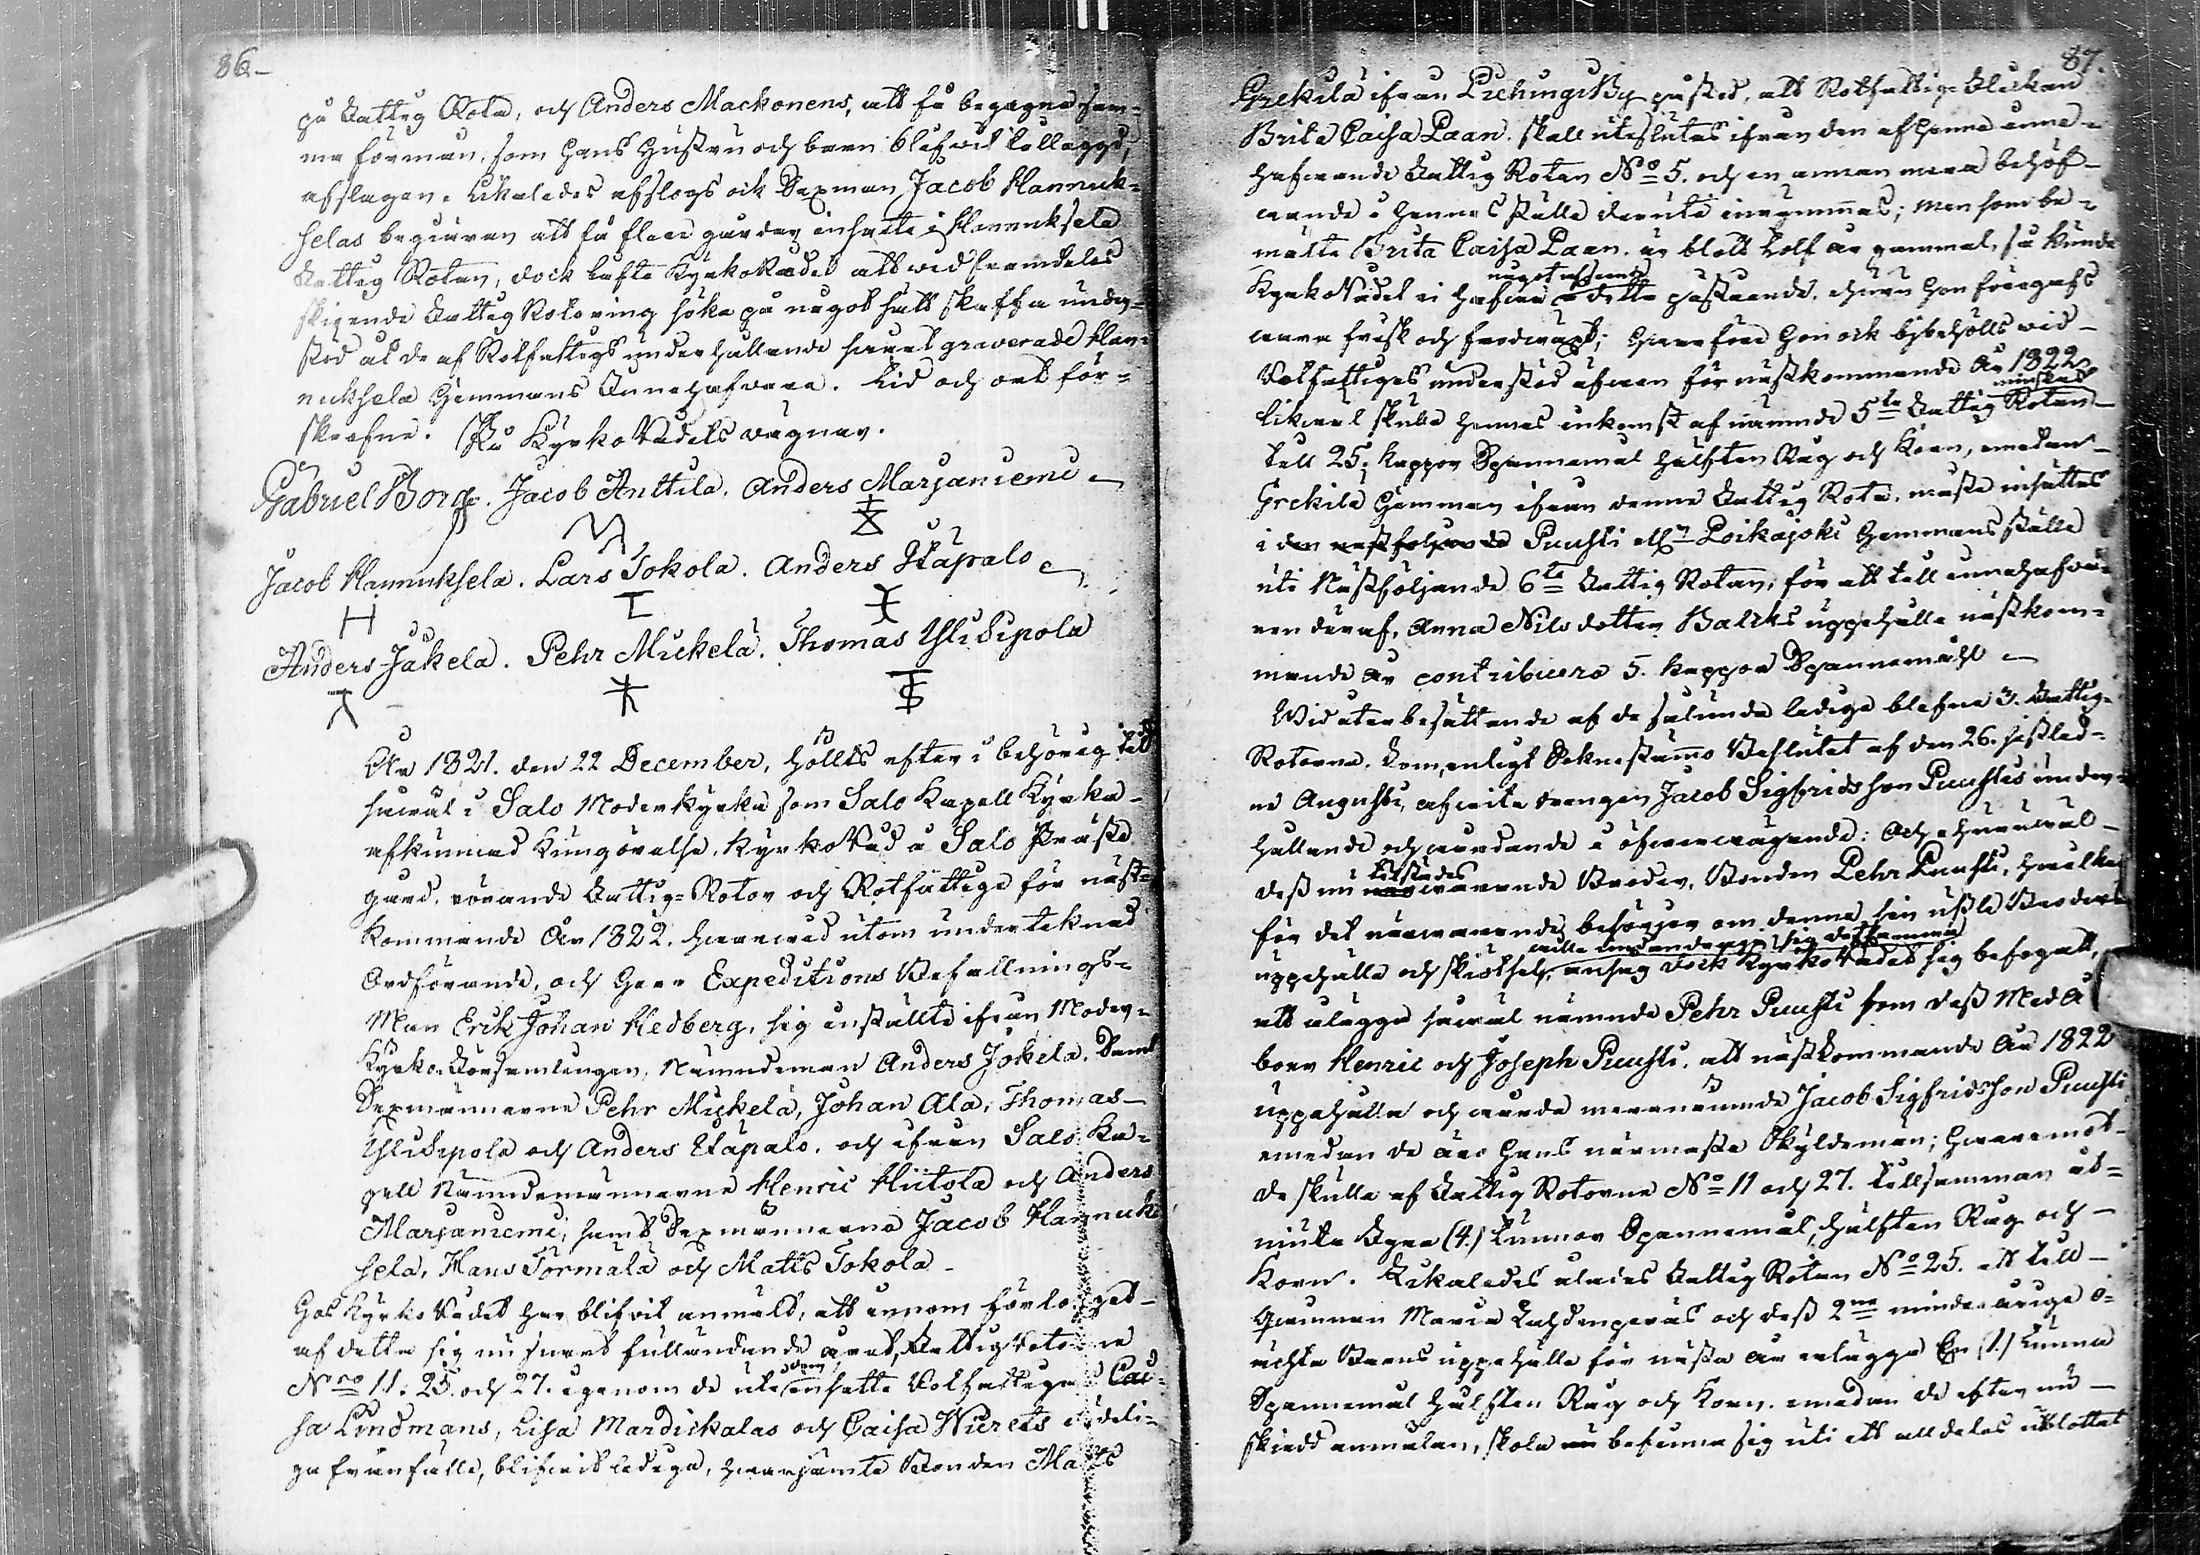 86.
på Fattig Rota, och Anders Mackonens, att få begagna sam-
ma förmån, som hans Hustru och barn blifvit tillaggd,
afslagen. Likaledes afslogs ock Sexman Jacob Hannuk-
selas begiäran att få flere gårdar insatte i Hannuksela
Fattig Rotan, dock lofte KyrkoRådet att vid framdeles
skiende FattigRotering söka på något sätt skaffa under-
stöd åt de af Rotfattigs underhållande svårt graverade Han-
nuksela Hemmans Innehafvare. Tid och ort för-
skrefne. På KyrkoRådets vägnar.
Gabriel Borg. Jacob Anttila. Anders Marjaniemi
Jacob Hannuksela. Lars Tokola. Anders Ytäpalo
Anders Jokela. Pehr Mickelä. Thomas YliSipola
År 1821. den 22 December, hölts efter i behörig tid
såväl i Salo Moderkyrka som Salo Kapell Kyrka
afkunnad Kungörelse, KyrkoRåd å Salo Präste
gård, rörande Fattig-Rotor och Rotfattige för näst-
kommande År 1822. hvarvid utom undertecknad
Ordförande, och Herr Expeditions Befallnings-
Man Erik Johan Hedberg, sig inställte ifrån Moder-
Kyrko Församlingen, Nämndeman Anders Jokela, Samt
Sexmännerne Pehr Mickelä, Johan Ala, Thomas
YliSipola och Anders Ytäpalo, och ifrån Salo Ka-
pell Nämndemännerne Henric Hiitola och Anders
Marjaniemi, samt Sexmännerne Jacob Hannuk
sela, Hans Törmälä och Matts Tokola
Hos KyrkoRådet har blifvit anmält, att innom förloppet
af detta sig nu snart fulländande året, Fattig Rotorne
Nro 11. 25. och 27. igenom de uti dem insatte Rotfattigas Cai-
sa Lindmans, Lisa Mardickalas och Caisa Wierets dödeli-
ga frånfälle, blifvit lediga, hvarjämte Bonden Matts
87.
Grekilä ifrån Piehingi By påstod, att Rotfattig Flickan
Brita Caisa Paan skall uteslutas ifrån den af henne inne-
hafvande Fattig Rotan No 5. och en annan mera behöf-
vande i hennes ställe deruti inrymmas; men som be-
mälte Brita Caisa Paan är blott tolf år gammal, så kunde
KyrkoRådet ei hafva något afseende å detta påstående, ehuru hon föregafs
vara frisk och frodvext; hvarföre hon ock bibehölls vid
Rotfattiges understöd äfven för nästkommande År 1822,
likväl skulle hennes inkomst af nämnde 5te Fattig Rotan minskas
till 25. kappor Spannemål hälften Råg och Korn, emedan
Grekilä Hemman ifrån denne Fattig Rota, måste insättas
i den nästföljande Puusti Loikajoki Hemmans ställe
uti Nästföljande 6te Fattig Rotan, för att till innehafva-
ren deraf, Anna Nils dotter Balcks uppehälle nästkom-
mande År contribuera 5. kappor Spannemåhl
Wid återbesättande af de sålunda ledige blefne 3. Fattig
Rotorne, kom, enligt Sockne stämmo Beslutet af den 26. sistled-
ne Augusti, afvita drengen Jacob Sigfridsson Puustis under-
hållande och vårdande i öfvervägande: och ehuruväl
dess nu tilstädes varande Broder, Bonden Pehr Puusti, hvilken
för det närvarande besörjer om denne sin usle Broders
uppehälle och skiötsel, ville undandraga sig detsamma, ansåg dock KyrkoRådet sig befogat,
att ålägga såväl nämnde Pehr Puusti som dess Med A
boer Henric och Joseph Puusti, att nästkommande År 1822
uppehålla och vårda merenämnde Jacob Sigfridsson Puusti
emedan de äro hans närmaste Skyldemän; hvaremot
de skulle af Fattig Rotorne No 11 och 27. tillsamman åt-
niuta Fyra (4.) Tunnor Spannemål, hälften Råg och
Korn. Likaledes ålades Fattig Rotan No 25. att till
Qvinnan Maria Lahdenperäs och dess 2ne minderårige o-
ächta Barns uppehälle för nästa År erlägga En (1.) Tunna
Spannemål hälften Råg och Korn, emedan de efter nu
skiedd anmälan, skola befinna sig uti ett alldeles utblottat